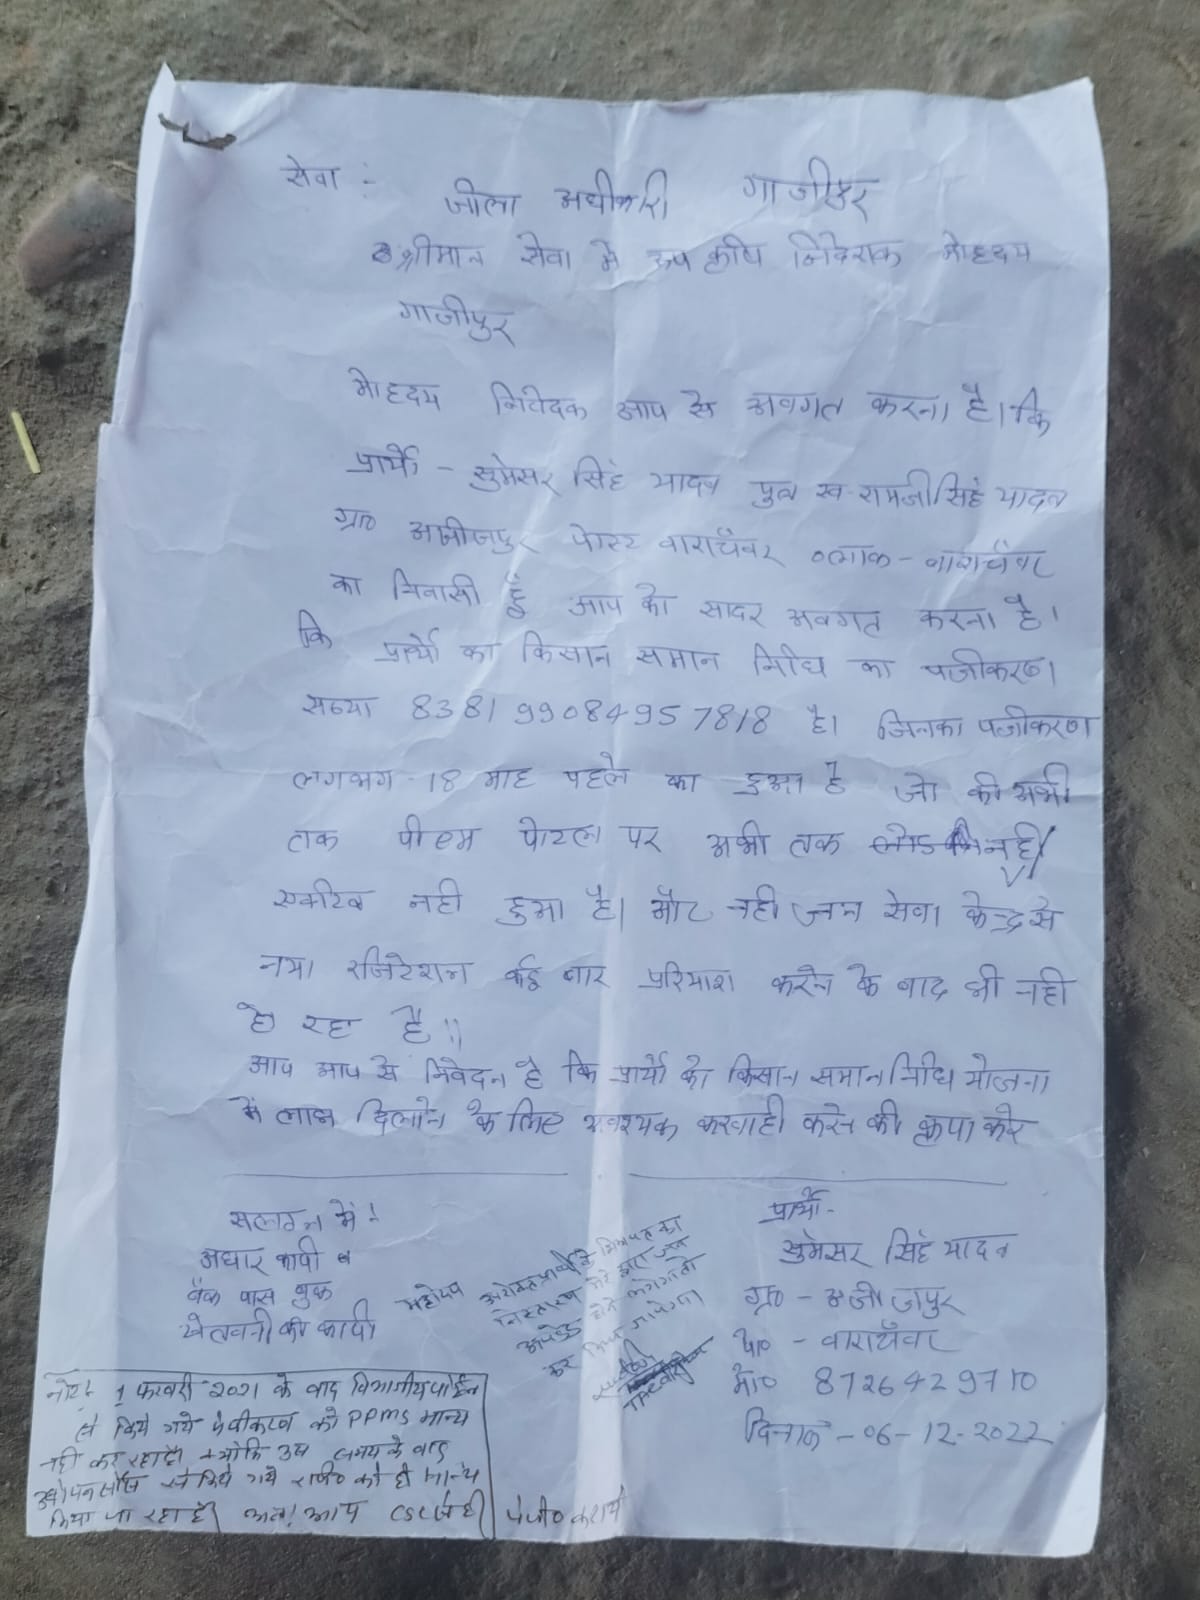 सेवा :-
जीला अधीकारी गाजीपुर
श्रीमान सेवा मे उप कृषि निदेशक मोहदय
गाजीपुर
मोहदय निवेदक आप से अवगत करना है। कि
प्रार्थी - सुमेसर सिहं यादव पुत्र स्व. रामजी सिहं यादव
ग्रा० अजीजपुर पोस्ट वाराचँवर ब्लाक - वाराचँवर
का निवासी हुँ आप को सादर अवगत करना है।
कि प्रार्थी का किसान समान निधि का पजीकरण
सख्या 83819908495 7818 है। जिनका पजीकरण
लगभग 18 माह पहले का हुआ है जो की अभी
तक पीएम पोटल पर अभी तक नही
एकटिव नही हुआ है। और नही जन सेवा केन्द्र से
नया रजिटेशन कई बार प्ररियाश करने के बाद भी नही
हो रहा है।।
आप आप से निवेदन है कि प्रार्थी को किसान समान निधि योजना
मे लाभ दिलाने के लिए अवश्यक करवाही करने की कृपा करे
सलग्न में!
अधार कापी व
बैंक पास बुक
खेतवनी की कापी
प्रार्थी-
सुमेसर सिहं यादव
ग्रा० - अजीजपुर
पो० - वाराचँवर
मो० 8726429710
दिनाक - 06-12-2022
महोदय
नोट! 1 फरवरी 2021 के बाद विभागीय पोर्टल
से किये गये पंजीकरण को PPMS मान्य
नही कर रहा है। क्योकि उस समय के बाद
ओपन सोर्स से किये गये राजी० को ही मान्य
किया जा रहा है। अतः आप CSC से ही पंजी० कराये